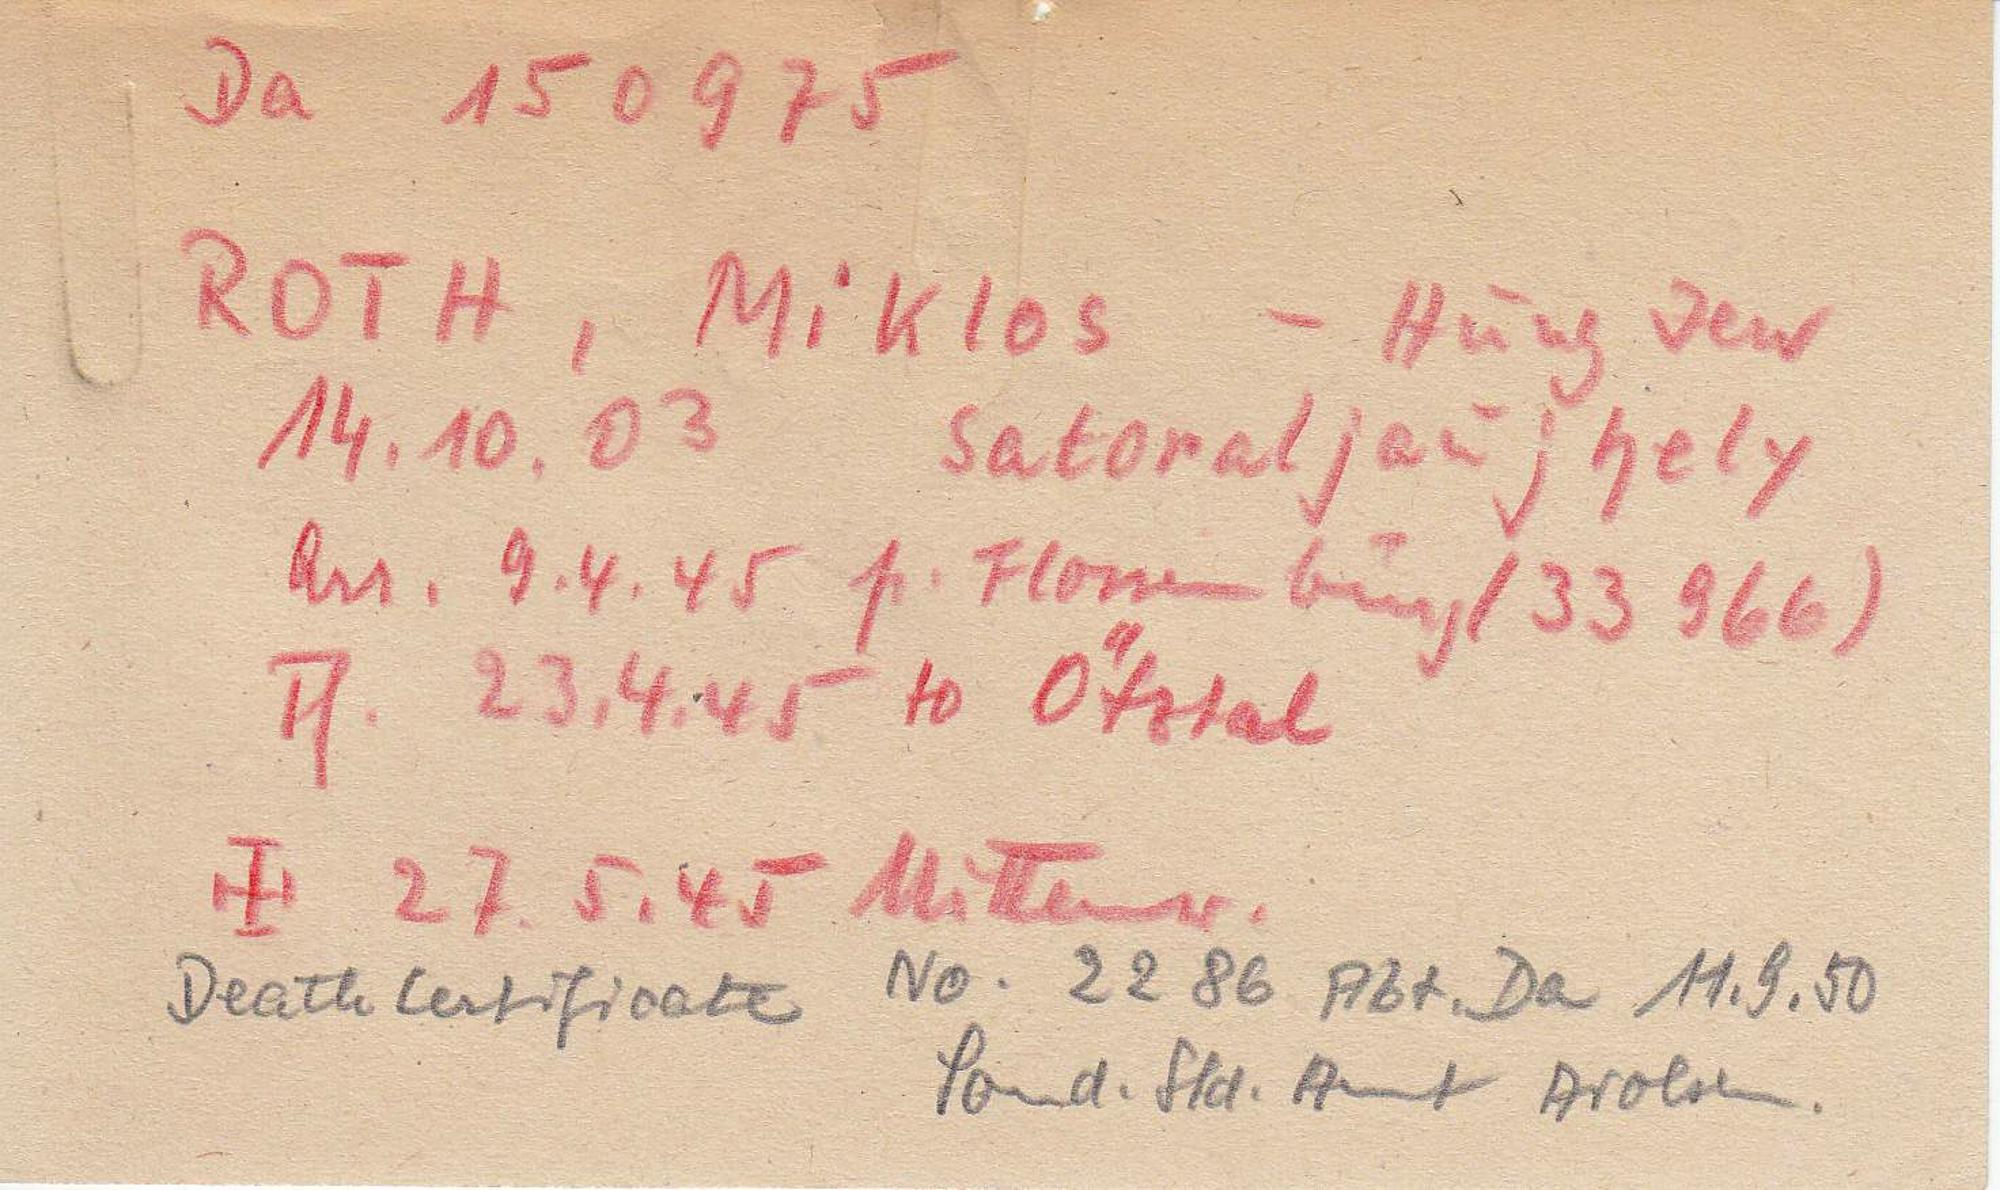 Da 150975
ROTH, Miklos - Hung Jew
14.10.03 Satoraljaujhely
Arr. 9.4.45 p. Flossenbürg (33 966)
Tf. 23.4.45 to Ötztal
27.5.45 Mittenw.
Death Certificate No. 2286 Abt. Da 11.9.50
Sond. Std. Amt Arolsen.